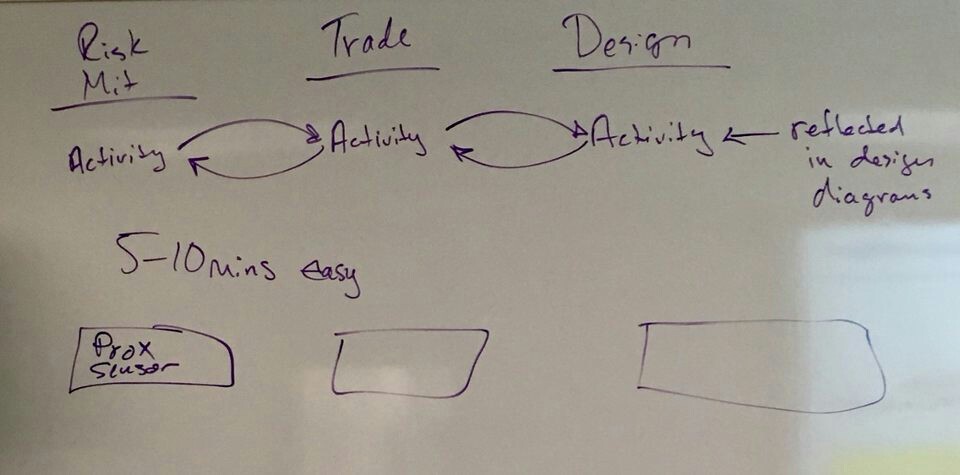 Risk Mit
Trade
Design
Activity
Activity
Activity
reflected
in design
diagrams
5-10 mins easy
Prox
Sensor